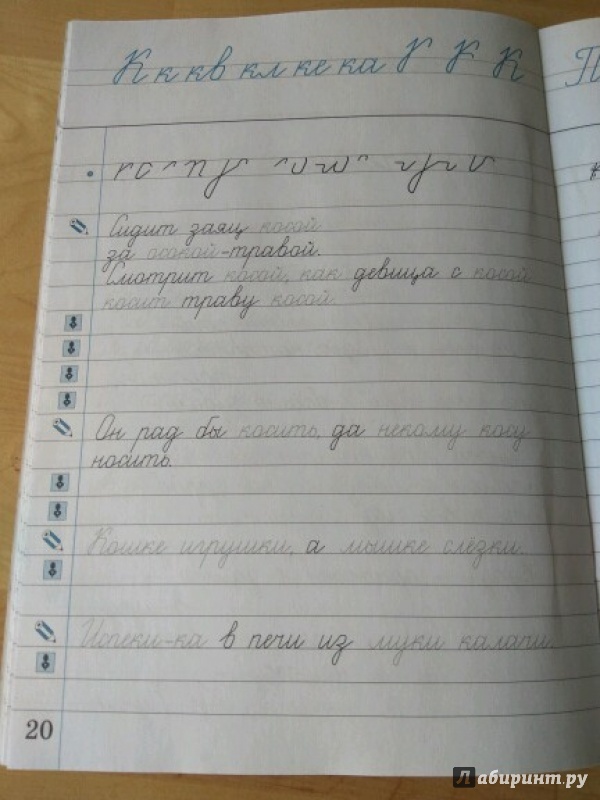 К к кв кл ке ка К К К
П
Сидит заяц косой
за осокой-травой.
Смотрит косой, как девица с косой
косит траву косой.
Он рад бы косить, да некому косу
носить.
Кошке игрушки, а мышке слёзки.
Испеки-ка в печи из муки калачи.
20
Лабиринт.ру